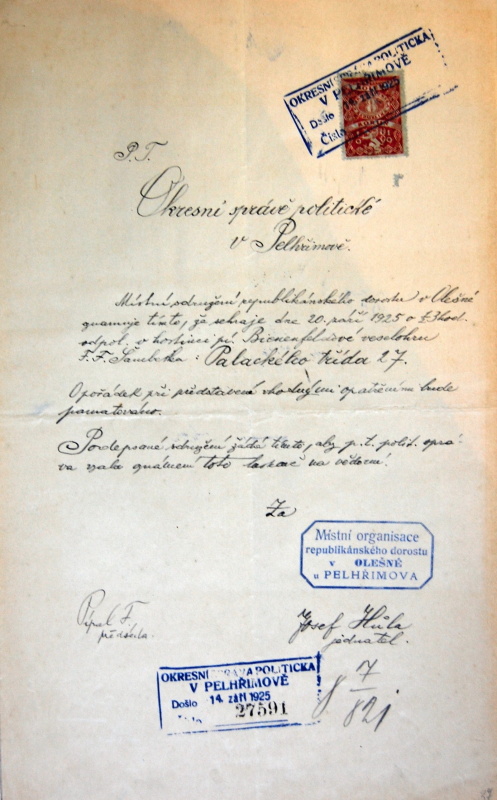 OKRESNÍ SPRÁVA POLITICKÁ
V PELHŘIMOVĚ
Došlo
Číslo
P. T.
Okresní správě politické
v Pelhřimově.
Místní sdružení republikánského dorostu v Olešné
oznamuje tímto, že sehraje dne 20. září 1925 o hod.
odpol. v hostinci pí. Bienenfeldové veselohru
F. F. Šamberka: Palackého třída 27.
O pořádek při představení vhodnými opatřeními bude
pamatováno.
Podepsané sdružení žádá tímto, aby p. t. polit. sprá-
va vzala oznámení toto laskavě na vědomí.
Za
Místní organisace
republikánského dorostu
v OLEŠNÉ
u PELHŘIMOVA
F.
předseda.
Josef Hůla
jednatel.
OKRESNÍ SPRÁVA POLITICKÁ
V PELHŘIMOVĚ
Došlo 14. září 1925
Číslo 27591